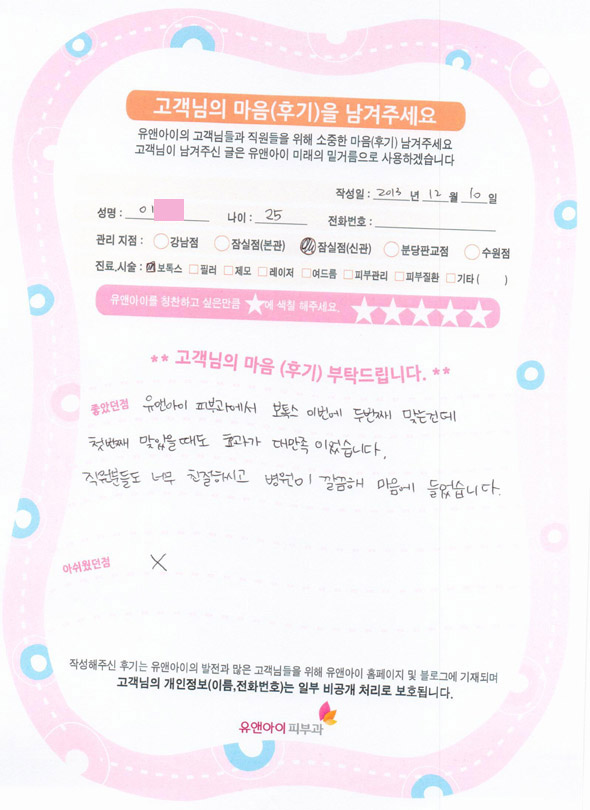 고객님의 마음(후기)을 남겨주세요
유앤아이의 고객님들과 직원들을 위해 소중한 마음(후기) 남겨주세요
고객님이 남겨주신 글은 유앤아이 미래의 밑거름으로 사용하겠습니다
작성일 : 2013 년 12 월 10 일
성명 : 이 나이 : 25 전화번호 :
관리 지점 : 강남점 잠실점(본관) 잠실점(신관) 분당판교점 수원점
진료,시술 : 보톡스 필러 제모 레이저 여드름 피부관리 피부질환 기타 ( )
유앤아이를 칭찬하고 싶은만큼 ★에 색칠 해주세요. ★★★★★
** 고객님의 마음 (후기) 부탁드립니다. **
좋았던점 유앤아이 피부과에서 보톡스 이번에 두번째 맞는건데
첫번째 맞았을때도 효과가 대만족이었습니다.
직원분들도 너무 친절하시고 병원이 깔끔해 마음에 들었습니다.
아쉬웠던점 X
작성해주신 후기는 유앤아이의 발전과 많은 고객님들을 위해 유앤아이 홈페이지 및 블로그에 기재되며
고객님의 개인정보(이름,전화번호)는 일부 비공개 처리로 보호됩니다.
유앤아이피부과